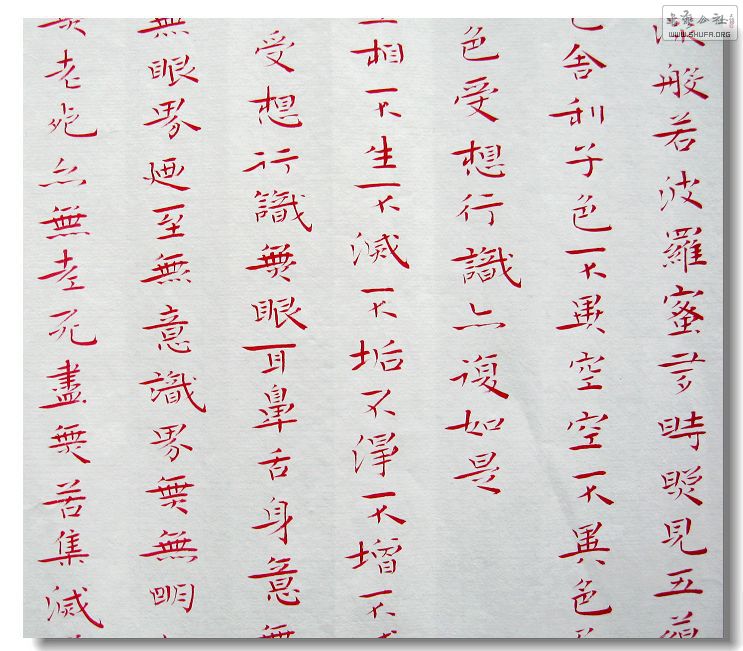 深般若波羅蜜多時照見五蘊
舍利子色不異空空不異色
色受想行識亦復如是
相不生不滅不垢不淨不增不
受想行識無眼耳鼻舌身意無
無眼界廼至無意識界無無明
無老死亦無老死盡無苦集滅
WWW.SHUFA.ORG